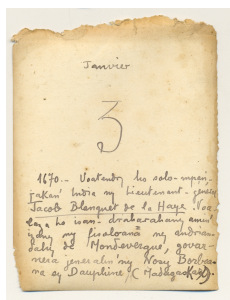 Janvier
3
1670.- Voatendry ho solo-mpan-
jakan' India ny Lieutenant-général
Jacob Blanquet de la Haye. Voa-
laza ho isan-draharahany amin'
izany ny fisoloana ny andrian-
dahy de Mondevergue, gover-
nera jeneralin'ny Nosy Bourbon
na sy Dauphine (Madagaskar).